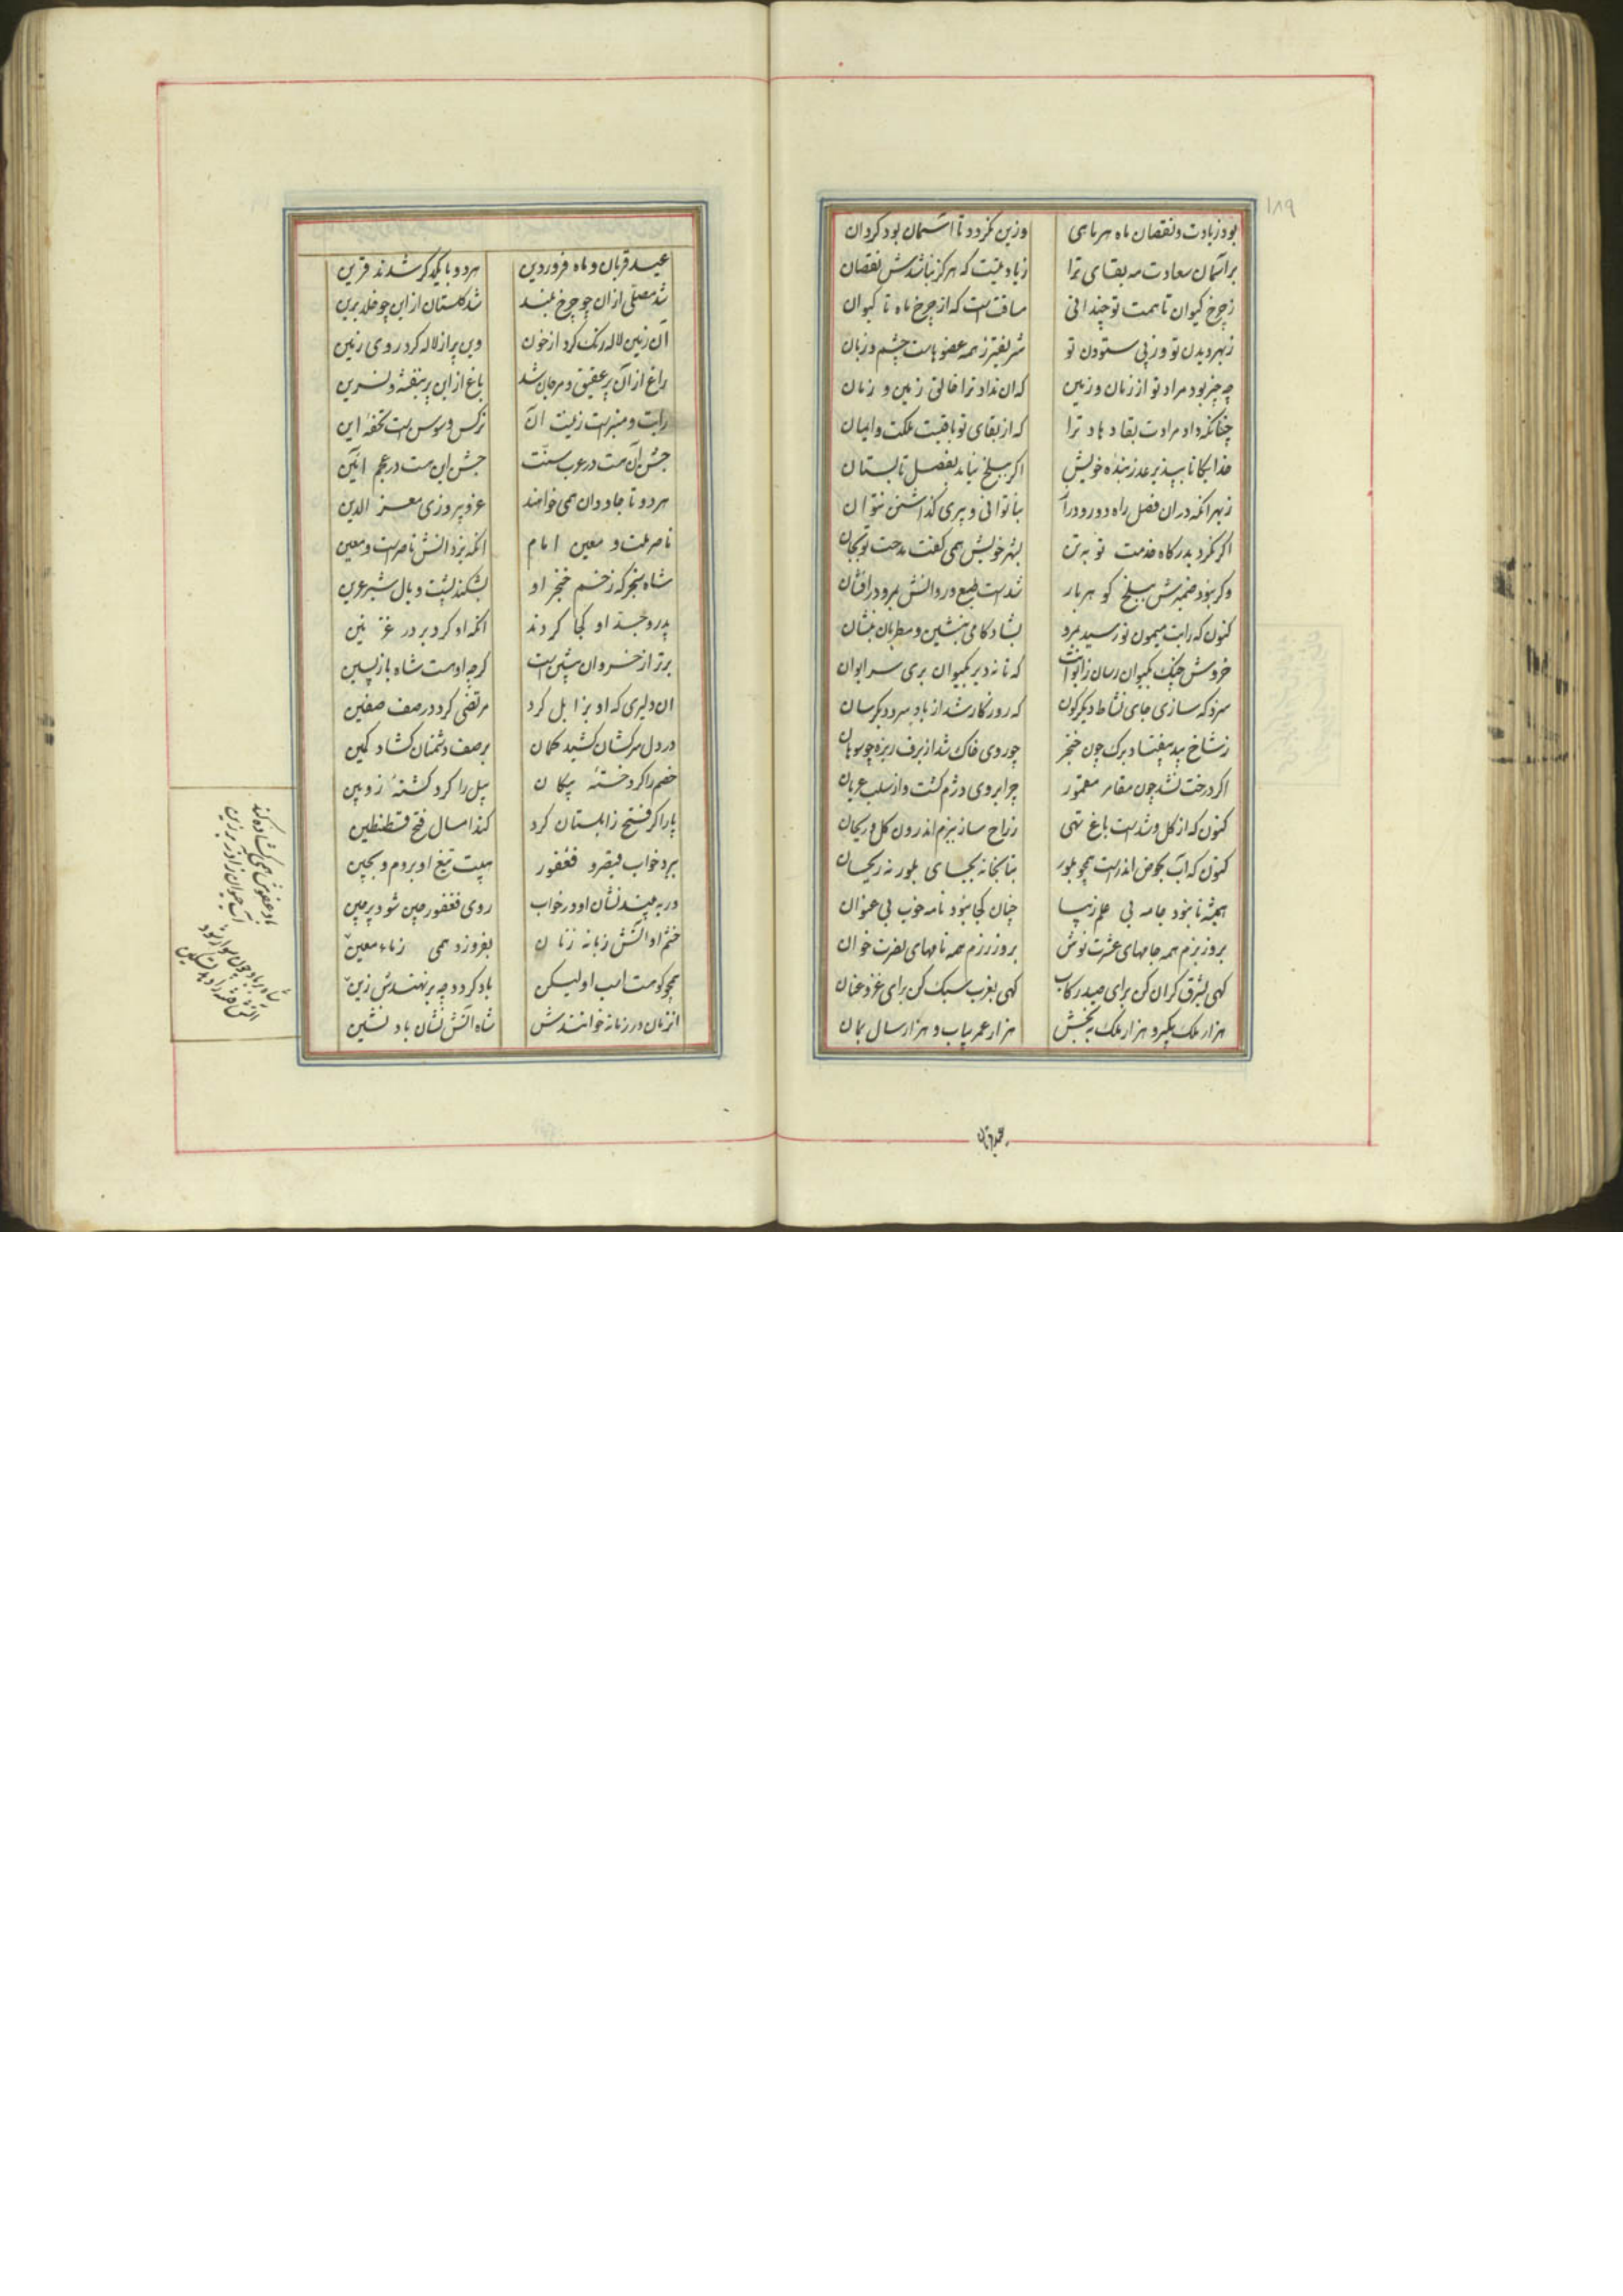 ۱۸۹
بود زیادت و نقصان ماه هر ماهی وزین نکردد تا آسمان بود کردان
بر آسمان سعادت مه بقای ترا زیادتیست که هرکز نباشدش نقصان
ز چرخ کیوان تا همت تو چندانی مسافتست که از چرخ ماه تا کیوان
ز بهر دیدن تو وز پی ستودن تو شریفتر ز همه عضوهاست چشم و زبان
چه چیز بود مراد تو از زمان و زمین که ان نداد ترا خالق زمین و زمان
چنانکه داد مرادت بقا دهاد ترا که از بقای تو باقیست ملکت و ایمان
خدایکانا بپذیر عذر بنده خویش اکر ببلخ نیاید بفصل تابستان
ز بهر انکه در ان فصل راه دور و دراز بناتوانی و پیری کذاشتن نتوان
اکر نکرد بدرکاه خدمت تو به تن بشهر خویش همی کفت مدحت تو بجان
وکر نبود ضمیرش ببلخ کوهربار شدست طبع و روانش بمرو درافشان
کنون که رایت میمون تو رسید بمرو بشادکامی بنشین و مطربان بنشان
خروش چنک بکیوان رسان ز ایوانت که تا نه دیر بکیوان بری سر ایوان
سزد که سازی جای نشاط دیکرکون که روزکار شد از باد سرد دیکرسان
ز شاخ بید بیفتاد برک چون خنجر چو روی خاک شد از برف ریزه چو سوهان
اکر درخت نشد چون مقامر مقمور چرا بروی دژم کشت و از سلب عریان
کنون که از کل و شدست باغ تهی ز راح ساز ببزم اندرون کل و ریحان
کنون که آب بحوض اندرست همچو بلور بتابخانه بجای بلور نه ریحان
همیشه تا نبود جامه بی علم زیبا چنان کجا نبود نامه خوب بی عنوان
بروز بزم همه جامهای عشرت نوش بروز رزم همه نامهای نصرت خوان
کهی بشرق کران کن برای صید رکاب کهی بغرب سبک کن برای غزو عنان
هزار ملک بکیر و هزار ملک به بخش هزار عمر بیاب و هزار سال بمان
عید قربان
عید قربان و ماه فروردین هر دو با یکدکر شدند قرین
شد مصلّی از ان چو چرخ بلند شد کلستان از این چو خلد برین
آن زمین لاله رنک کرد از خون وین پر از لاله کرد روی زمین
راغ از آن پر عقیق و مرجان شد باغ از این پر بنفشه و نسرین
رایت و منبرست زینت آن نرکس و سوسن است تحفهٔ این
جشن آن هست در عرب سنّت جشن این هست در عجم آئین
هر دو تا جاودان همی خواهند عز و پیروزی معز الدین
ناصر ملت و معین امام انکه یزدانش ناصرست و معین
شاه سنجر که زخم خنجر او بشکند پشت و یال شیر عرین
پدر و جدّ او کجا کردند انکه او کرد بر در غزنین
برتر از خسروان پیشین است کرچه او هست شاه بازپسین
ان دلیری که او بزابل کرد مرتضی کرد در صف صفین
در دل سرکشان کشید کمان بر صف دشمنان کشاد کمین
خصم را کرد خستهٔ پیکان پیل را کرد کشتهٔ زوبین
پار اکر فتح زابلستان کرد کند امسال فتح قسطنطین
ببرد خواب قیصر و فغفور هیبت تیغ او بروم و بچین
ور به بیند نشان او در خواب روی فغفور چین شود پرچین
خشم او آتش زبانه زنان بفروزد همی ز ماء معین
همچو کوهست اسب او لیکن باد کردد چه برنهندش زین
انزمان در زمانه خوانندش شاه آتش نشان باد نشین
باد عفوش همی کشاده کند آب حیوان ز آذر برزین
شاه بر باد چون سوار شود آتش فتنه را دهد تسکین